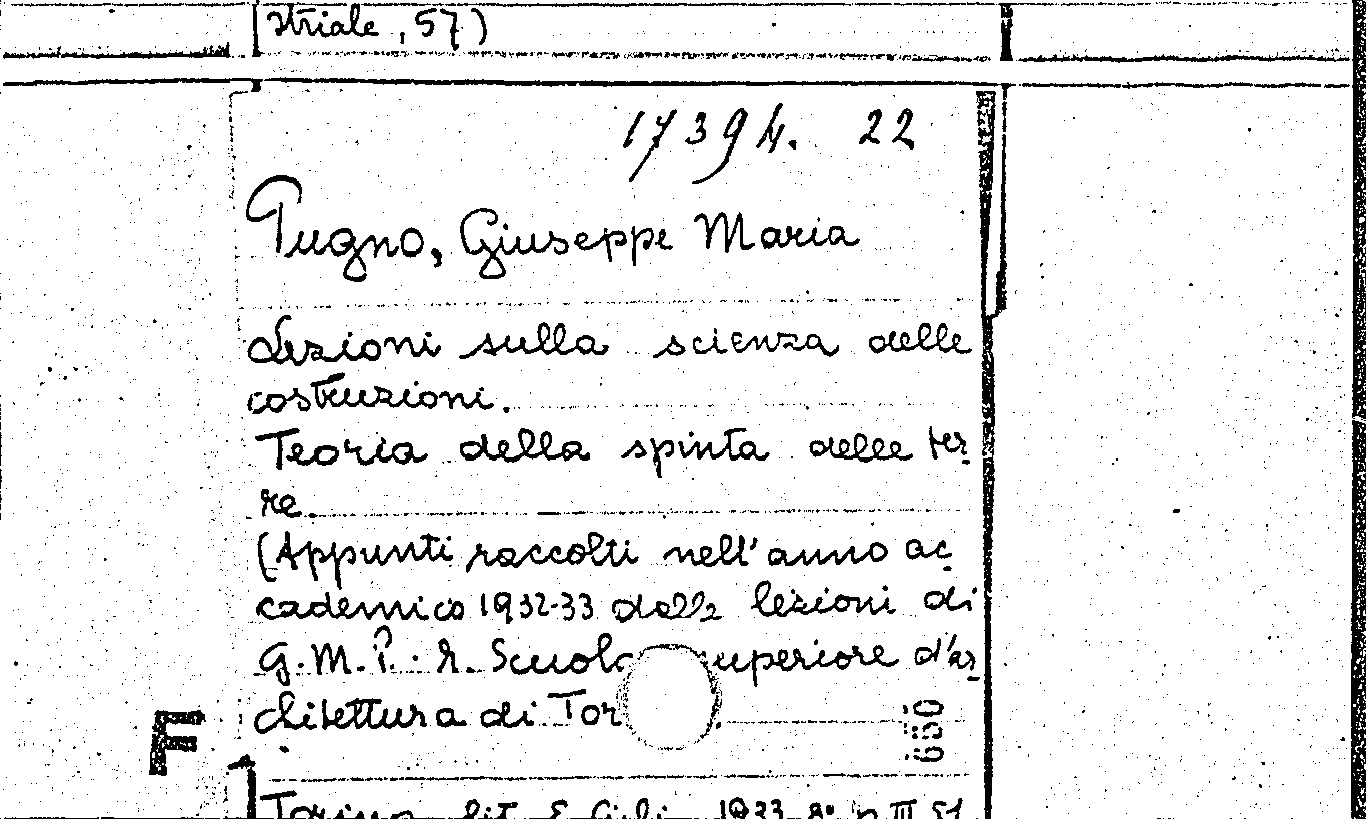 striale, 57)
17394. 22
Pugno, Giuseppe Maria
Lezioni sulla scienza delle
costruzioni.
Teoria della spinta delle ter
re.
(Appunti raccolti nell'anno ac
cademico 1932-33 dalle lezioni di
G. M. P. R. Scuola superiore d'ar
chitettura di Tor
F
650
Torino, lit. 1933. 8° p. III 51